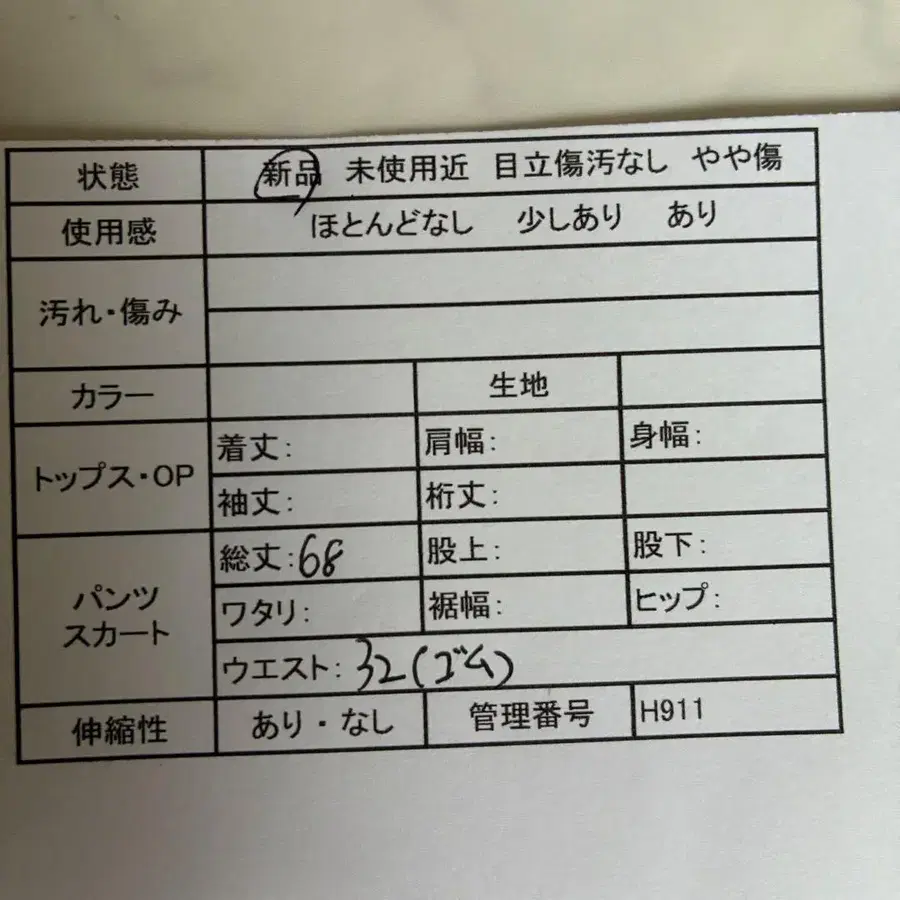 状態 新品 未使用近 目立傷汚なし やや傷
使用感 ほとんどなし 少しあり あり
汚れ・傷み
カラー 生地
トップス・OP
着丈: 肩幅: 身幅:
袖丈: 裄丈:
パンツ
スカート
総丈:68 股上: 股下:
ワタリ: 裾幅: ヒップ:
ウエスト: 32(ゴム)
伸縮性 あり・なし 管理番号 H911